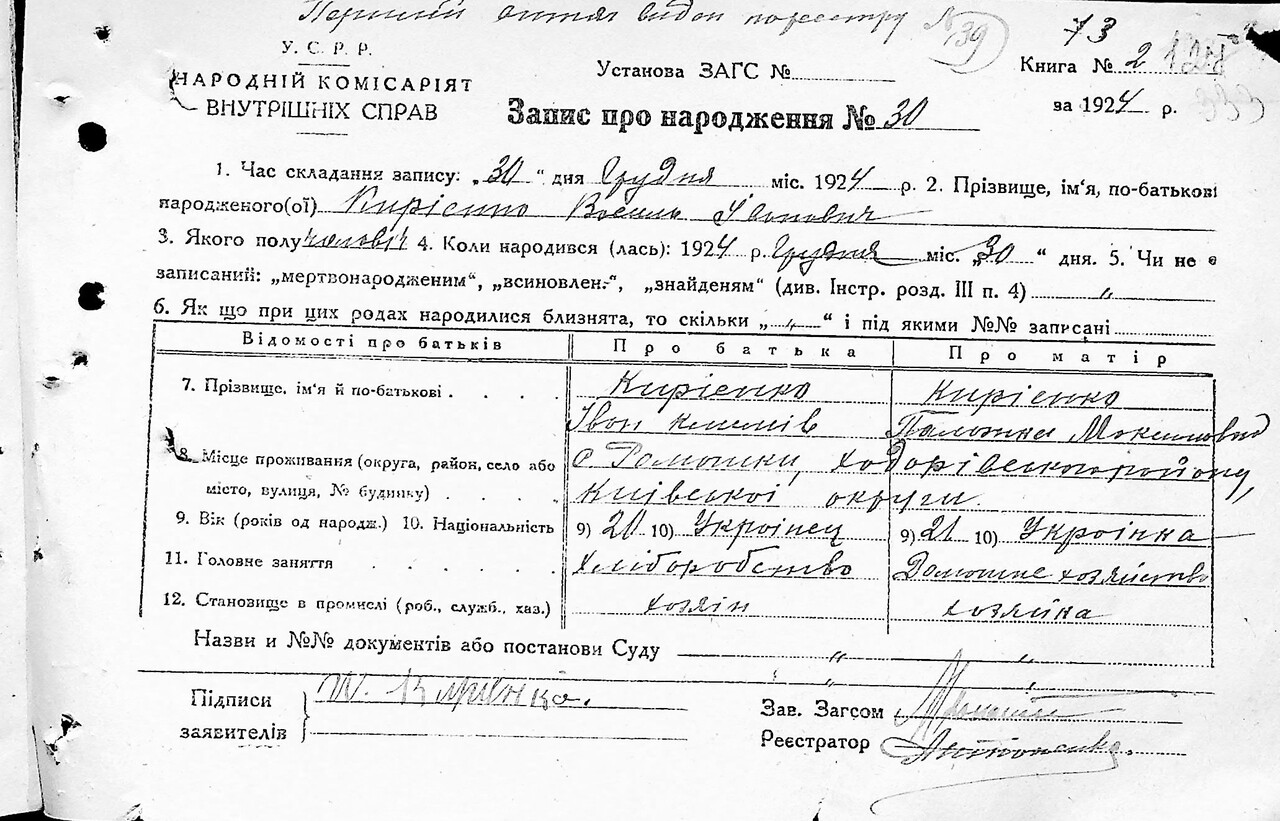 Перший витяг видан по реєстру № 39
73
У. С. Р. Р.
НАРОДНІЙ КОМІСАРІЯТ
ВНУТРІШНІХ СПРАВ
Установа ЗАГС №
Книга № 2
за 1924 р.
333
Запис про народження № 30
1. Час складання запису: „30“ дня Грудня міс. 1924 р. 2. Прізвище, ім‘я, по-батькові
народженого(ої) Кирієнко Василь Іванович
3. Якого полу чоловіч 4. Коли народився (лась): 1924 р. Грудня міс. „30“ дня. 5. Чи не є
записаний: „мертвонародженим“, „всиновлен.-“, „знайденям“ (див. Інстр. розд. III п. 4) „
6. Як що при цих родах народилися близнята, то скільки „ „ “ і під якими №№ записані
Відомості про батьків Про батька Про матір
7. Прізвище, ім‘я й по-батькові . . . . Кирієнко Кирієнко
Івон Палажка Максимовна
8. Місце проживання (округа, район, село або с Ромашки, Ходорівського району,
місто, вулиця, № будинку) . . . . Київської округи.
9. Вік (років од народж.) 10. Національність 9) 20 10) Українец 9) 21 10) Українка
11. Головне заняття . . . . . . Хліборобство Домашне хозяйство
12. Становище в промислі (роб., служб., хаз.) хозяїн хозяйка
Назви и №№ документів або постанови Суду „ „
Підписи
заявителів
Зав. Загсом
Реєстратор Антоненко.